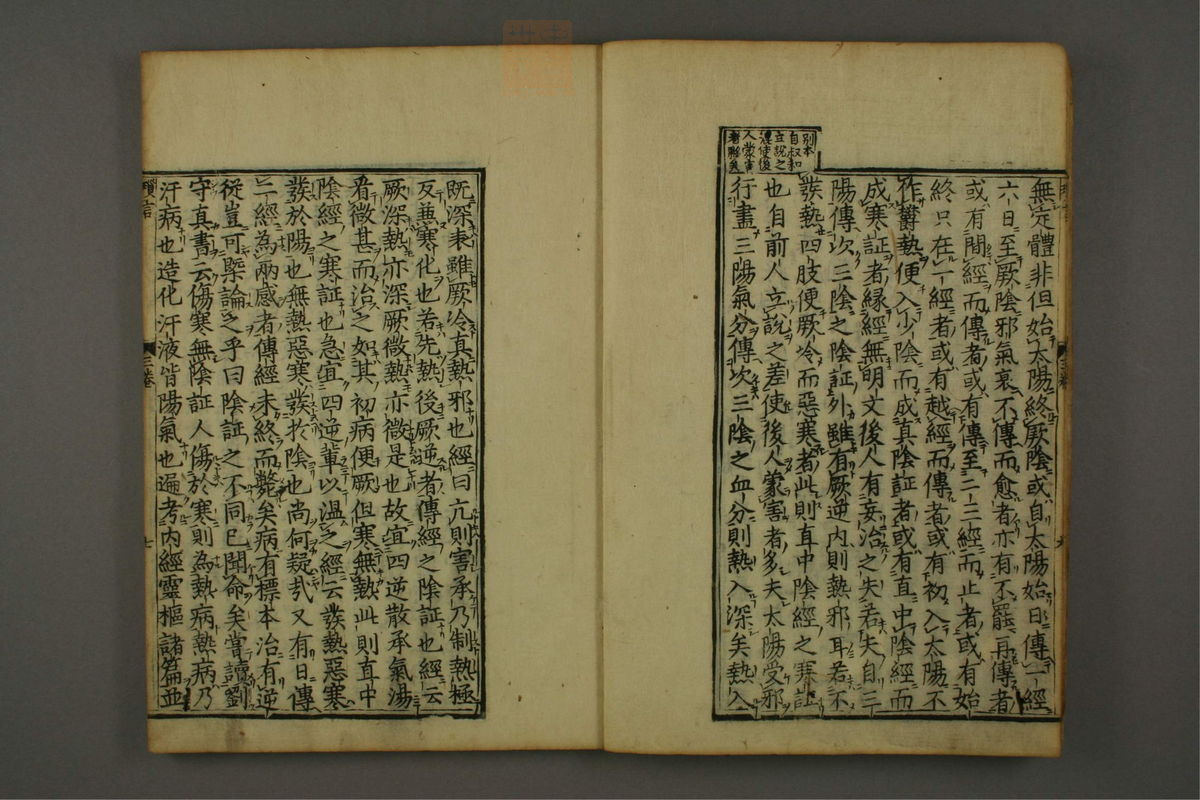 無定體非但始太陽終厥陰或自太陽始日傳一經
六日至厥陰邪氣衰不傳而愈者亦有不罷再傳者
或有間經而傳者或有傳至二三經而止者或有始
終只在一經者或有越經而傳者或有初入太陽不
作欝熱便入少陰而成真陰証者或有直中陰經而
成寒証者縁經無明文後人有妄治之失若夫自三
陽傳次三陰之陰証外雖有厥逆内則熱邪耳若不
發熱四肢便厥冷而惡寒者此則直中陰經之寒証
也自前人立説之差使後人蒙害者多夫太陽受邪
行盡三陽氣分傳次三陰之血分則熱入深矣熱入
別本
自叔和
立説之
差使後
人蒙害
者
三卷
既深表雖厥冷真熱邪也經曰亢則害承乃制熱極
反兼寒化也若先熱後厥逆者傳經之陰証也經云
厥深熱亦深厥微熱亦微是也故宜四逆散承氣湯
看微甚而治之如其初病便厥但寒無熱此則直中
陰經之寒証也急宜四逆輩以温之經云發熱惡寒
發於陽也無熱惡寒發於陰也尚何疑哉又有日傳
二經為兩感者傳經未終而斃矣病有標本治有逆
從豈可槩論之乎曰陰証之不同已聞命矣嘗讀劉
守真書云傷寒無陰証人傷於寒則為熱病熱病乃
汗病也造化汗液皆陽氣也遍考内經靈樞諸篇並
三卷
七